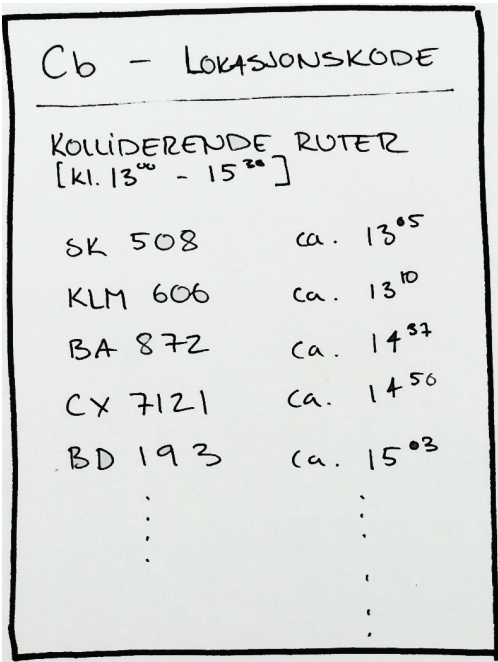 Cb - LOKASJONSKODE
KOLLIDERENDE RUTER
[Kl. 13⁰⁰ - 15³⁰]
SK 508 ca. 13⁰⁵
KLM 606 ca. 13¹⁰
BA 872 ca. 14³⁷
CX 7121 ca. 14⁵⁰
BD 193 ca. 15⁰³